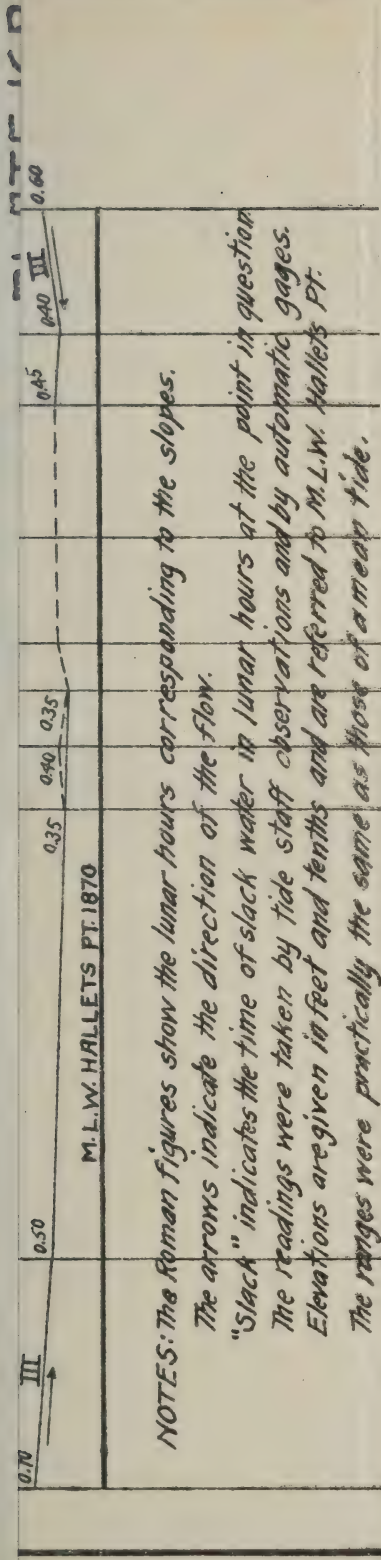 0.70 III 0.50 0.35 0.40 0.35 0.45 0.40 III 0.60
M.L.W. HALLETS PT. 1870
NOTES: The Roman figures show the lunar hours corresponding to the slopes.
The arrows indicate the direction of the flow.
"Slack" indicates the time of slack water in lunar hours at the point in question
The readings were taken by tide staff observations and by automatic gages.
Elevations are given in feet and tenths and are referred to M.L.W. Hallets Pt.
The ranges were practically the same as those of a mean tide.